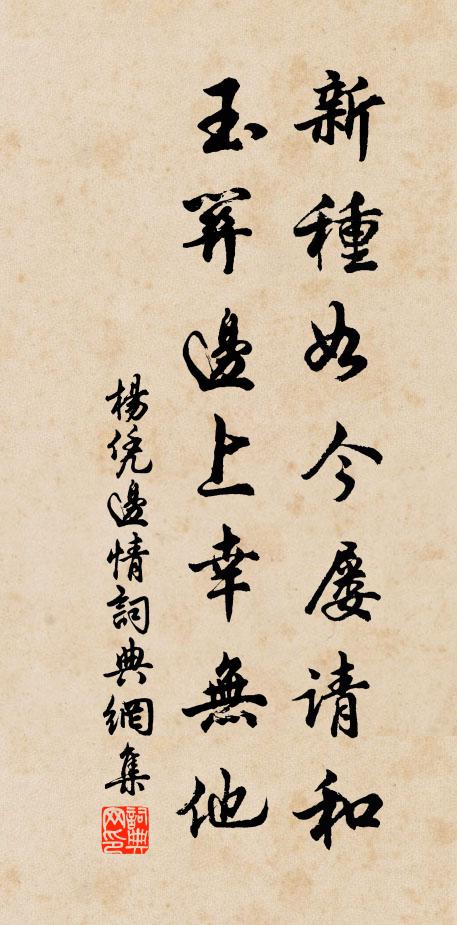 新種如今屡请和
玉关邊上幸無他
楊凭邊情詞典網集
詞典网印